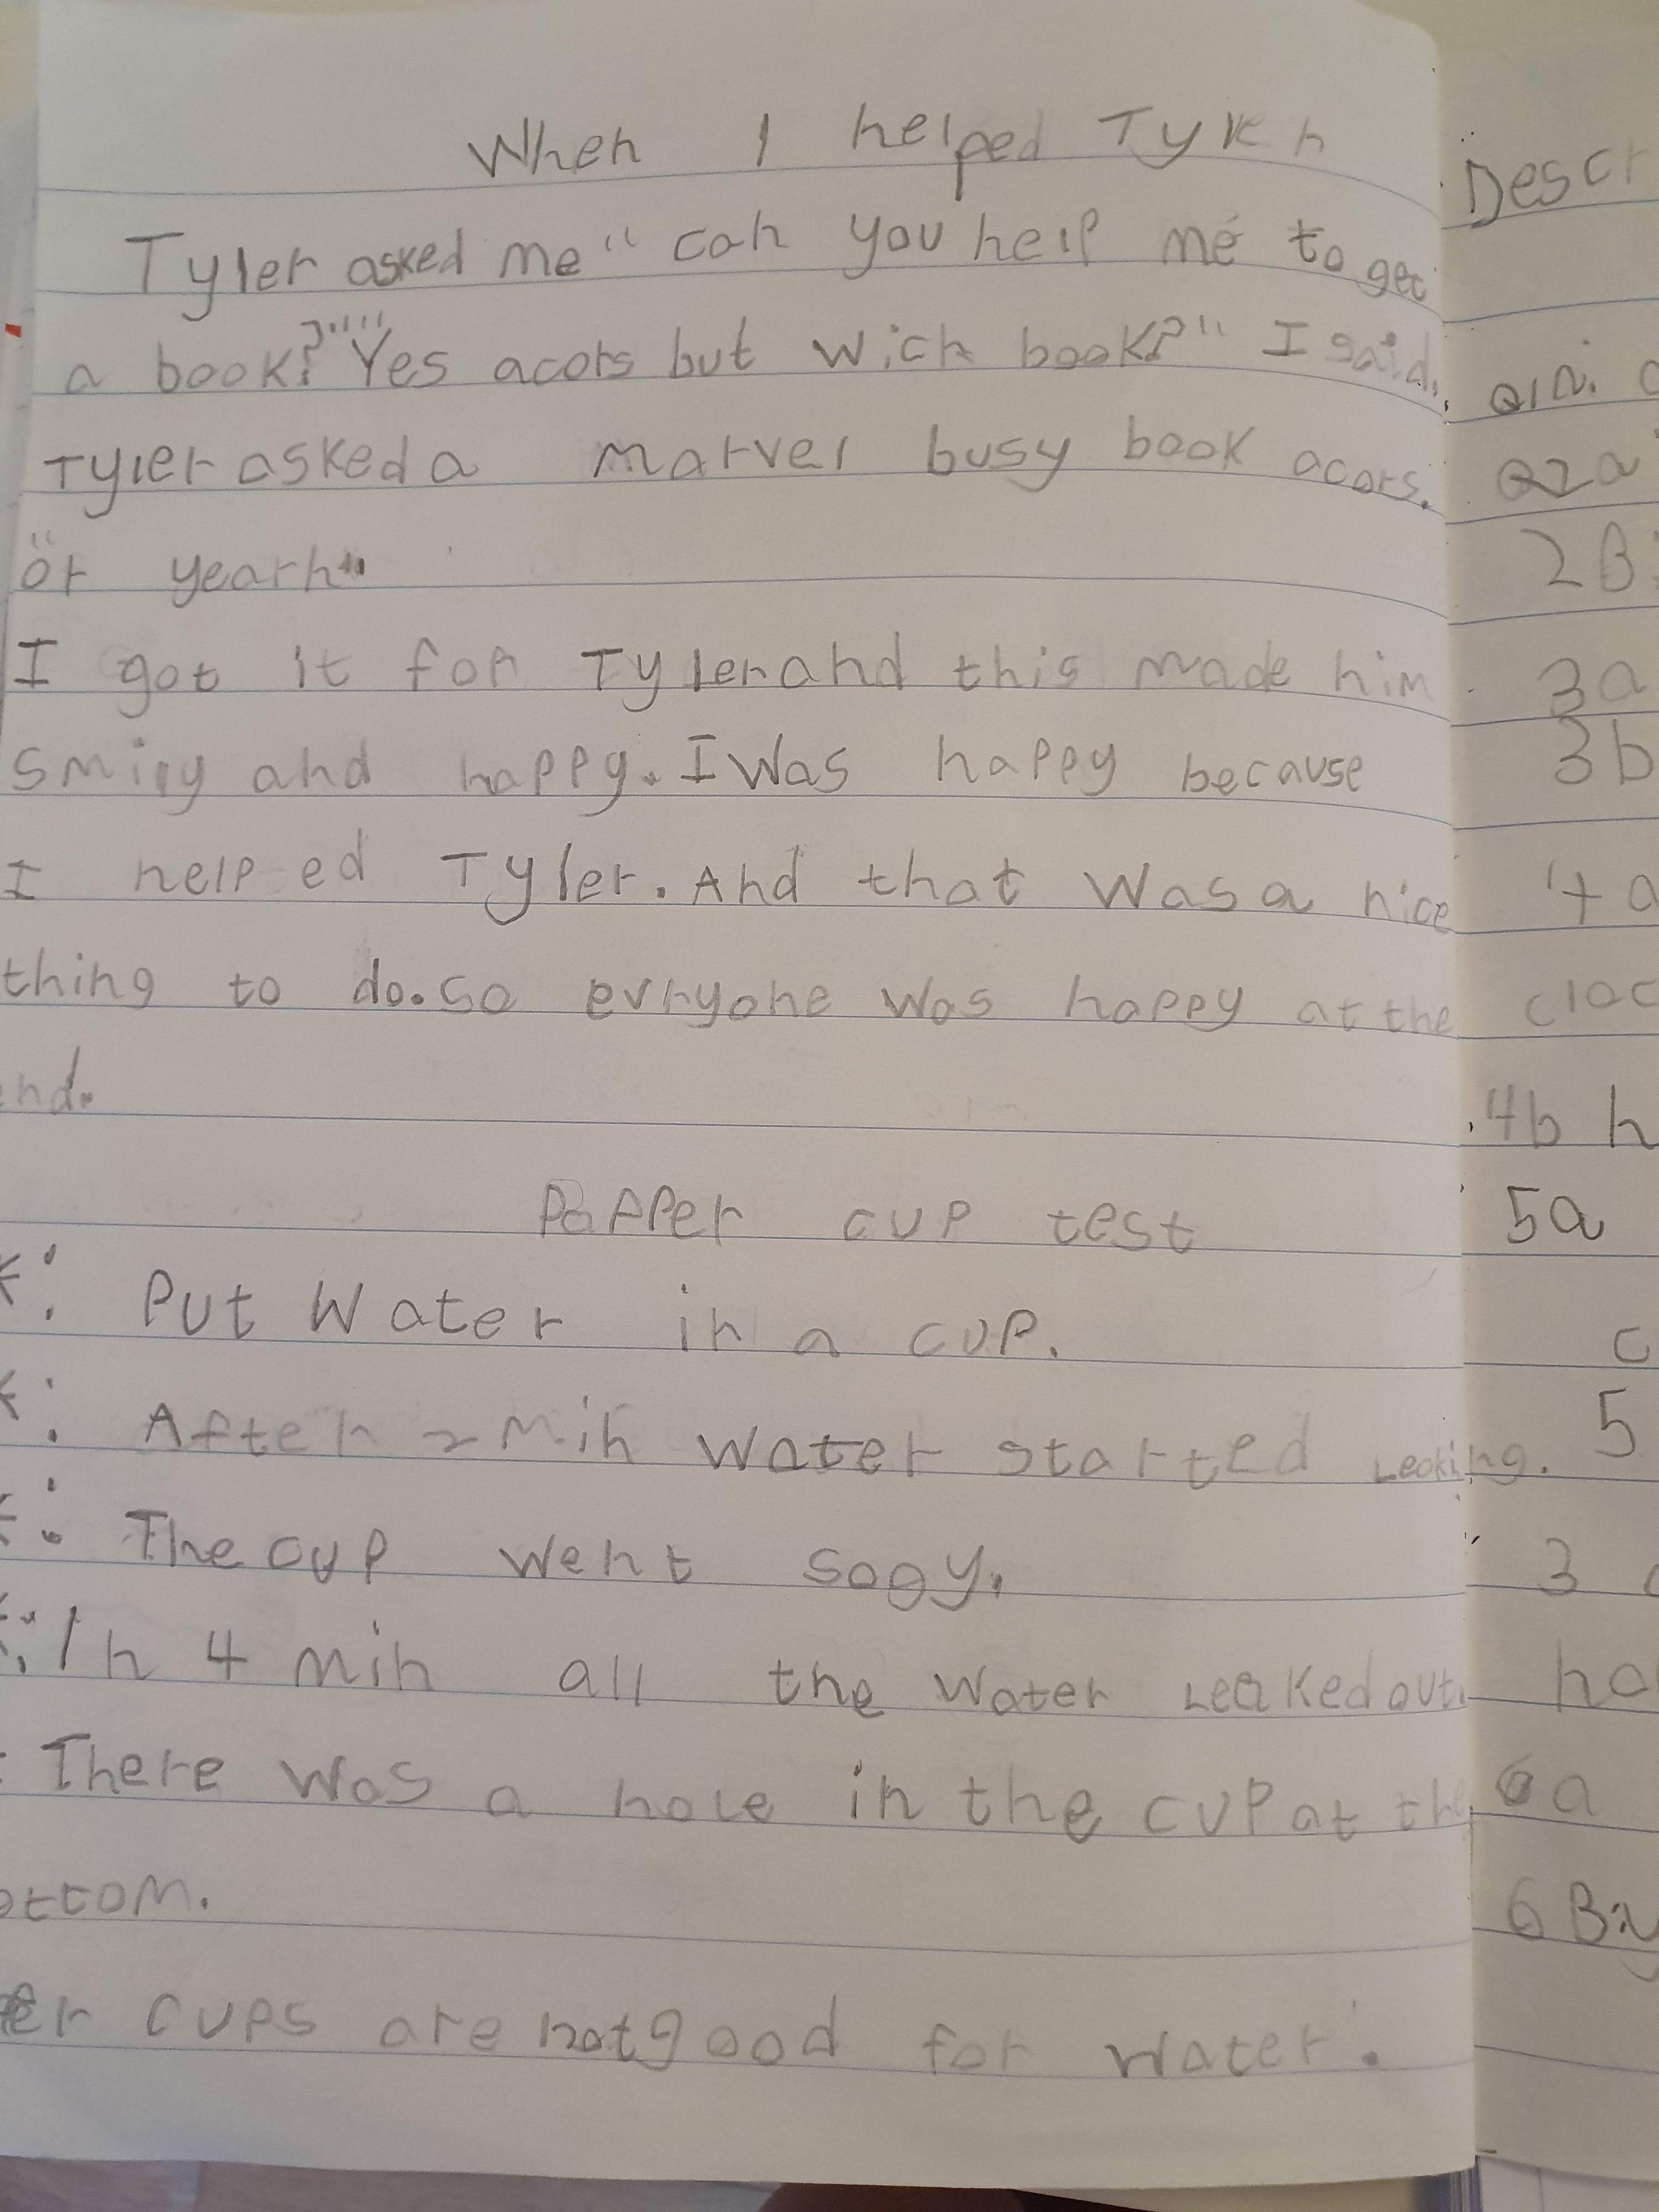 When I helped Tyler
Tyler asked me "can you help me to get
a book?""" Yes acors but wich book?" I said.
Tyler asked a marvel busy book acors.
"or yearh"
I got it for Tyler and this made him
smily and happy. I was happy because
I helped Tyler. And that was a nice
thing to do. so evryone was happy at the
end.
Papper cup test
*: Put water in a cup.
*: After 2 min water started Leaking.
*: The cup went sogy.
*: In 4 min all the water Leaked out.
: There was a hole in the cup at the
ottom.
er cups are not good for water.
Descr
Q1
Q2a
2B
3a
3b
4a
cloc
4b h
5a
c
5
3
ho
6a
6B